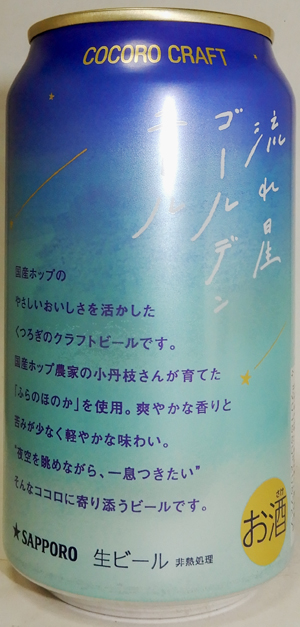 COCORO CRAFT
流れ星
ゴールデン
エール
国産ホップの
やさしいおいしさを活かした
くつろぎのクラフトビールです。
国産ホップ農家の小丹枝さんが育てた
「ふらのほのか」を使用。爽やかな香りと
苦みが少なく軽やかな味わい。
"夜空を眺めながら、一息つきたい"
そんなココロに寄り添うビールです。
★SAPPORO 生ビール 非熱処理
さけ
お酒